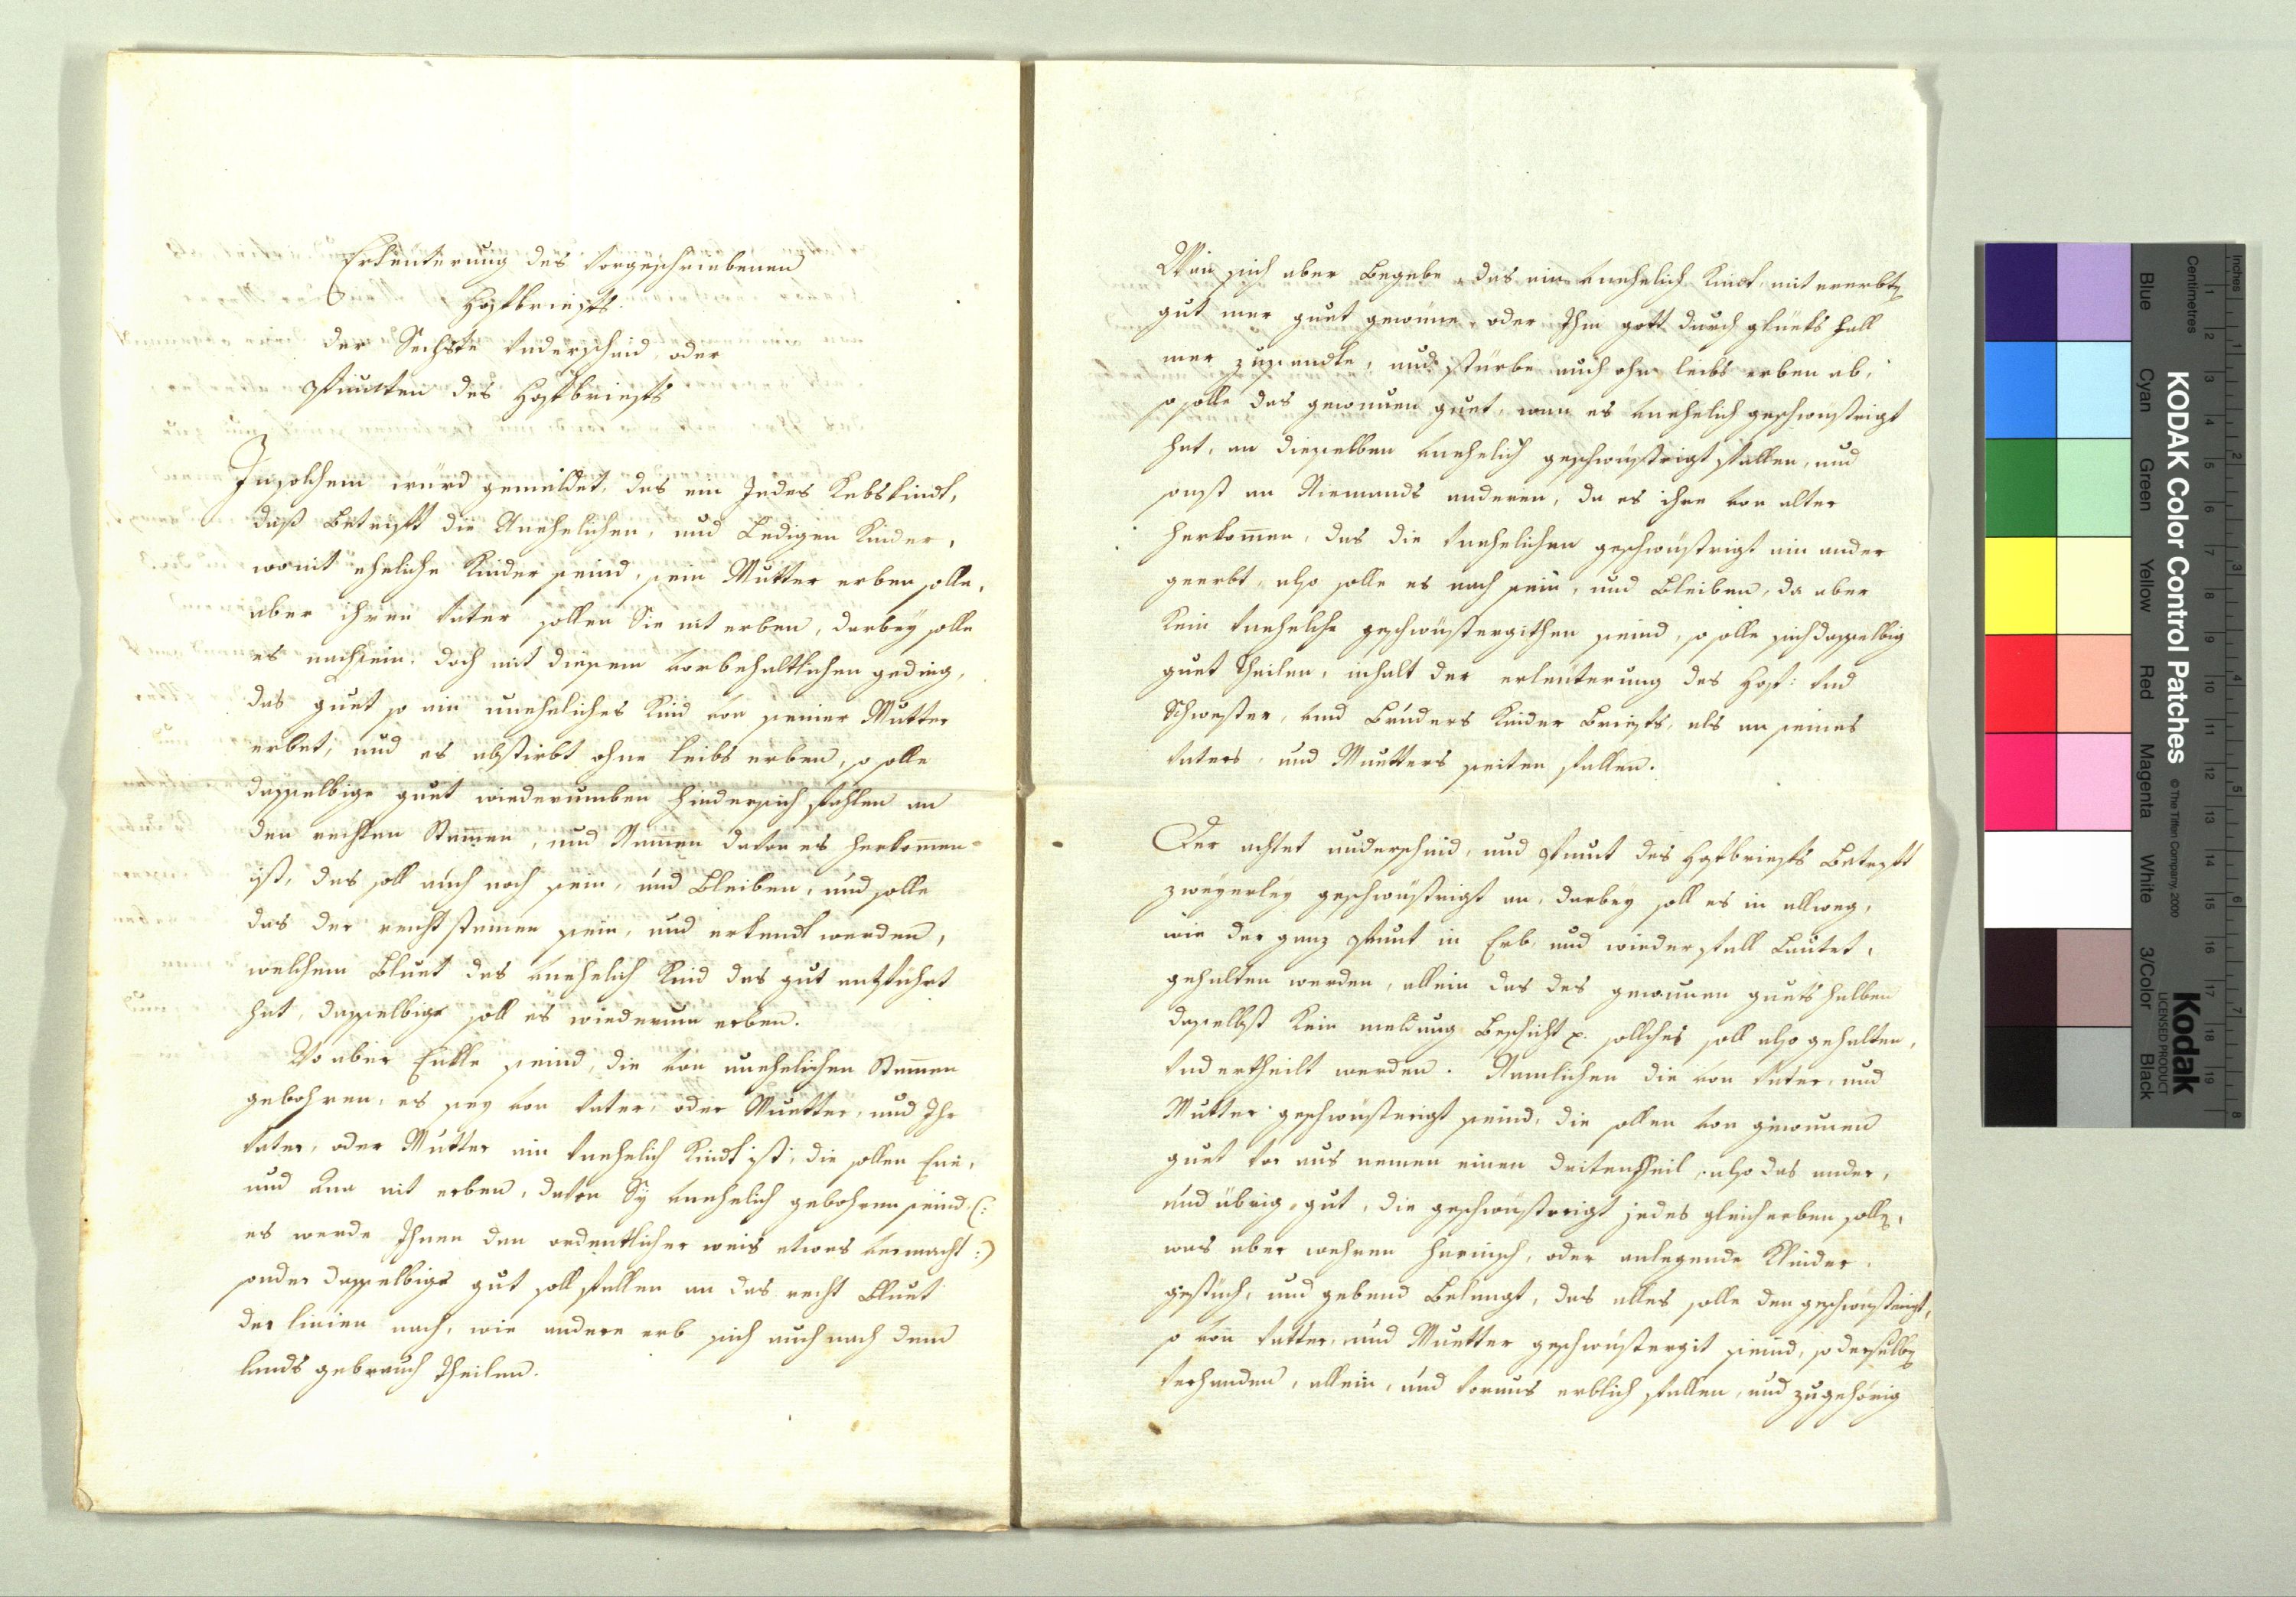 Erleuterung des vorgeschriebenen
Hofbriefs.
Der Sechste underscheid, oder
Puncten des Hofbriefs
In solchem würd gemeldet, das ein Jedes Kebskindt,
daß betrifft die Unehelichen, und Ledigen Kinder,
womit eheliche Kinder seind, sein Mutter erben solle,
aber ihren vater sollen Sie nit erben, darbey solle
es nachsein. doch mit diesem vorbehaltlichen geding,
das guet so ein uneheliches Kind von seiner Mutter
erbet, und es abstirbt ohne leibs erben, so solle
dasselbige guet wiederumben hindersich fahlen an
den rechten Stam̅en, und Nam̅en davon es herkom̅en
ist, das soll auch noch sein, und bleiben, und solle
das der recht stamen sein, und erkendt werden,
welchem Bluet das unehelich Kind das gut entführt
hat, dasselbige soll es wiederum erben.
Wo aber Enkle seind, die von unehelichen Stam̅en
gebohren, es sey von vater, oder Muetter, und Ihr
vater, oder Mutter ein unehelich Kindt ist, die sollen Ene,
und Ana nit erben, davon Sÿ unehelich gebohren seind (:
es werde Ihnen den ordentlicher weis etwas vermacht :)
sonder dasselbige gut soll fallen an das recht Bluet
der linien nach, wie andere erb sich auch nach dem
lands gebrauch theilen.
Wan sich aber begebe, das ein unehelich Kindt mit ererbte̅
gut mer guet gewüne, oder Ihm gott durch glücks fall
mer zusandte, und stürbe auch ohn leibs erben ab,
so solle das gewunen guet, wan es unehelich geschwüstrigt
hat, an dieselben unehelich geschwüstrigt fallen, und
sonst an Niemands anderen, da es ihre von alter
herkom̅en, das die unehelichen geschwüstrigt ein ander
geerbt, also solle es noch sein, und bleiben, da aber
Kein uneheliche geschwüstergithen seind, so solle sich dasselbig
guet theilen, inhalt der erleüterung des Hof: und
Schwester, und Bruders Kinder Briefs, als an seines
vaters, und Muetters seiten fallen.
Der achtet underscheid, und Punct des Hofbriefs betrifft
zweÿerleÿ geschwüstrigt an, darbeÿ soll es in allweg,
wie der ganz Punct in Erb, und wiederfall lautet,
gehalten werden, allein das des gewunen guets halben
daselbst Kein meldung beschicht p. sollches soll also gehalten,
und ertheilt werden. Namlichen die von vater, und
Mutter geschwüsterigt seind, die sollen von gewunen
guet vor aus nemen einen dritentheil, also das ander,
und übrig gut, die geschwüstrigt jedes gleich erben solle̅,
was aber wehren harnisch, oder anlegende Kleider,
gestüch, und gebend belangt, das alles solle den geschwüstrigt,
so von vatter, und Muetter geschwüstergit seind, so derselbe̅
verhanden, allein, und voraus erblich fallen, und zugehörig
KODAK Color Control Patches
© The Tiffen Company, 2000
Kodak
LICENSED PRODUCT
Blue Cyan Green Yellow Red Magenta White 3/Color Black
Centimetres Inches
1 2 3 4 5 6 7 8 9 10 11 12 13 14 15 16 17 18 19
1 2 3 4 5 6 7 8